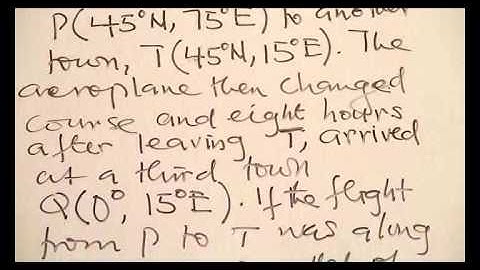 P(45°N, 75°E) to another
town, T(45°N, 15°E). The
aeroplane then changed
course and eight hours
after leaving T, arrived
at a third town
Q(0°, 15°E). If the flight
from P to T was along